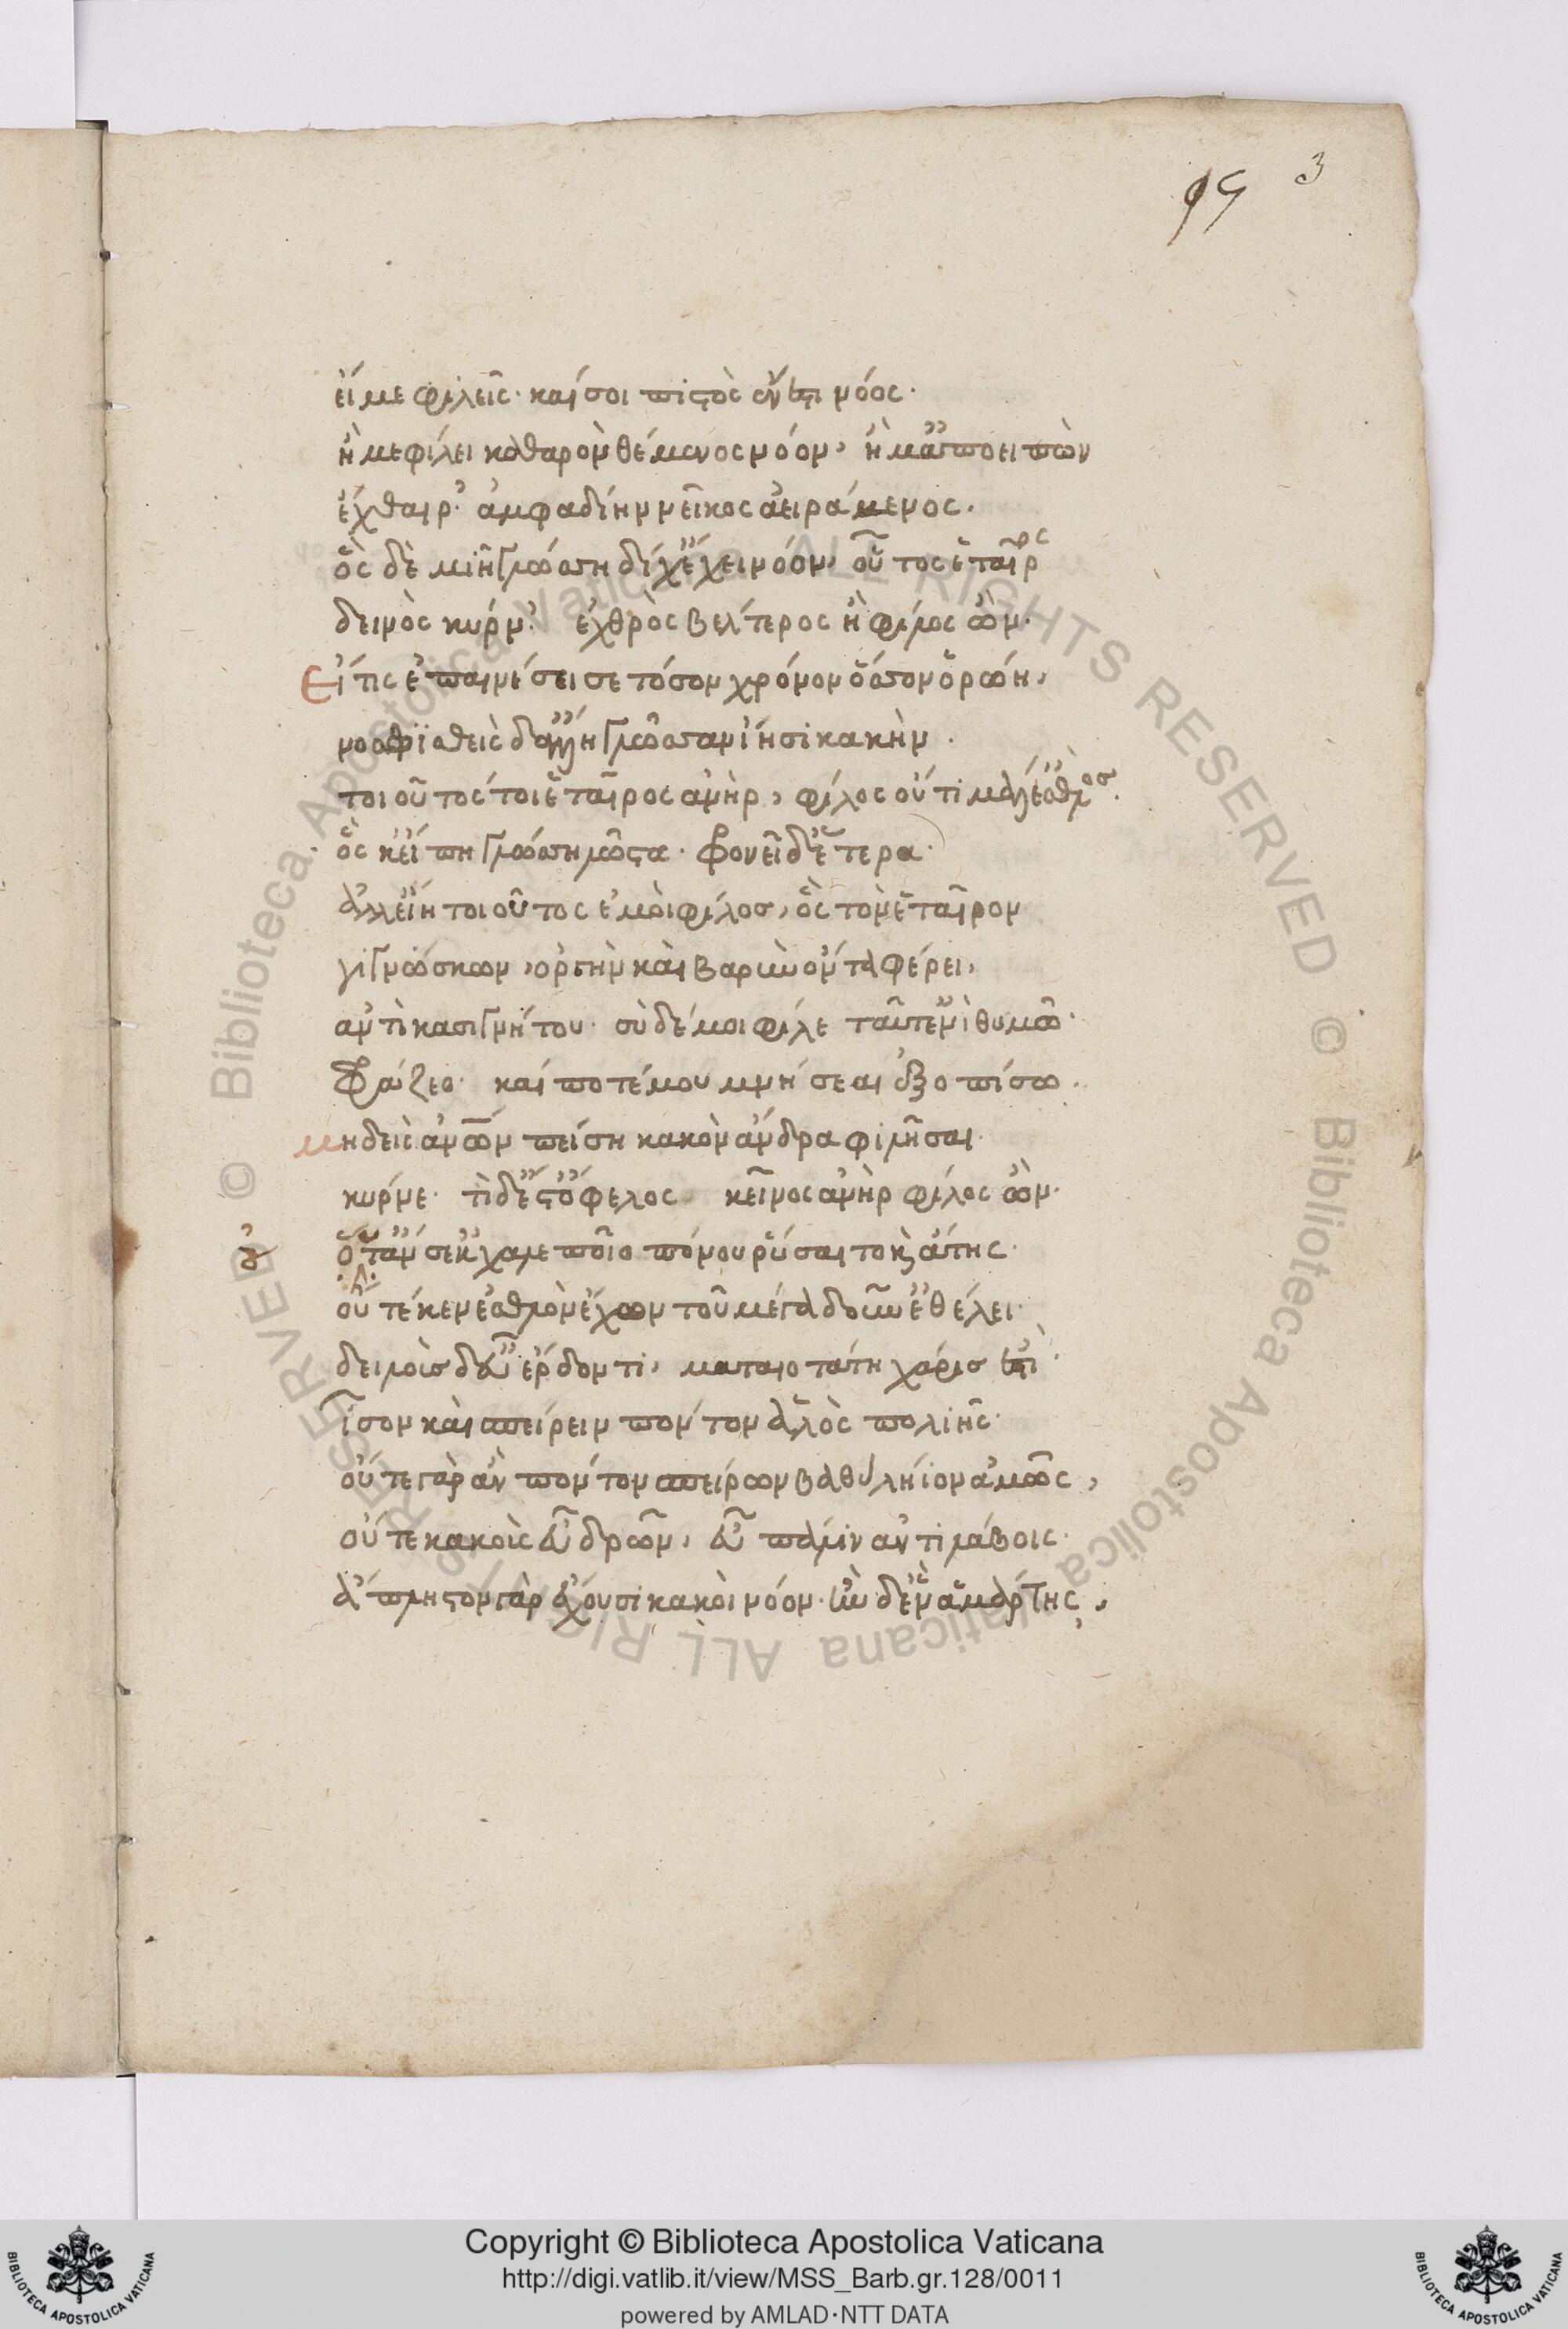 95 3
εἴ με φιλεῖς· καί σοι πιστὸς ἔνεστι νόος·
ἤ με φίλει καθαρὸν θέμενος νόον, ἤ μ' ἀποειπὼν
ἔχθαιρ' ἀμφαδίην νεῖκος ἀειράμενος.
ὃς δὲ μιῇ γλώσσῃ δίχ' ἔχει νόον, οὗτος ἑταῖρος
δεινὸς κύρν'· ἐχθρὸς βέλτερος ἢ φίλος ὤν.
Εἴ τις ἐπαινέσει σε τόσον χρόνον ὅσσον ὁρώη,
νοσφισθεὶς δ' ἄλλῃ γλῶσσαν ἵησι κακήν.
τοιοῦτός τοι ἑταῖρος ἀνὴρ, φίλος οὔτι μάλ' ἐσθλός.
ὅς κ' εἴπῃ γλώσσῃ λῷστα· φρονεῖ δ' ἕτερα·
ἀλλ' εἴη τοιοῦτος ἐμοὶ φίλος, ὃς τὸν ἑταῖρον
γιγνώσκων, ὀργὴν καὶ βαρὺν ὄντα φέρει,
ἀντὶ κασιγνήτου· σὺ δέ μοι φίλε ταῦτ' ἐνὶ θυμῷ·
Φράζεο· καί ποτέ μου μνήσεαι ἐξοπίσω.
μηδεὶς ἀνθρώπων πείσῃ κακὸν ἄνδρα φιλῆσαι·
κύρνε· τί δ' ἔστ' ὄφελος κεῖνος ἀνὴρ φίλος ὤν·
οὔτ' ἄν σ' ἐκ χαλεποῖο πόνου ῥύσαιτο καὶ ἄτης·
οὔτέ κεν ἐσθλὸν ἔχων τοῦ μεγαδοῦν ἐθέλει·
δειλοὺς δ' εὖ ἔρδοντι, ματαιοτάτη χάρις ἐστί·
ἶσον καὶ σπείρειν πόντον ἁλὸς πολιῆς·
οὔτε γὰρ ἂν πόντον σπείρων βαθὺ λήϊον ἀμῷς,
οὔτε κακοὺς εὖ δρῶν, εὖ πάλιν ἀντιλάβοις·
ἄπληστον γὰρ ἔχουσι κακοὶ νόον· ἢν δ' ἓν ἁμάρτης,
Copyright © Biblioteca Apostolica Vaticana
http://digi.vatlib.it/view/MSS_Barb.gr.128/0011
powered by AMLAD·NTT DATA